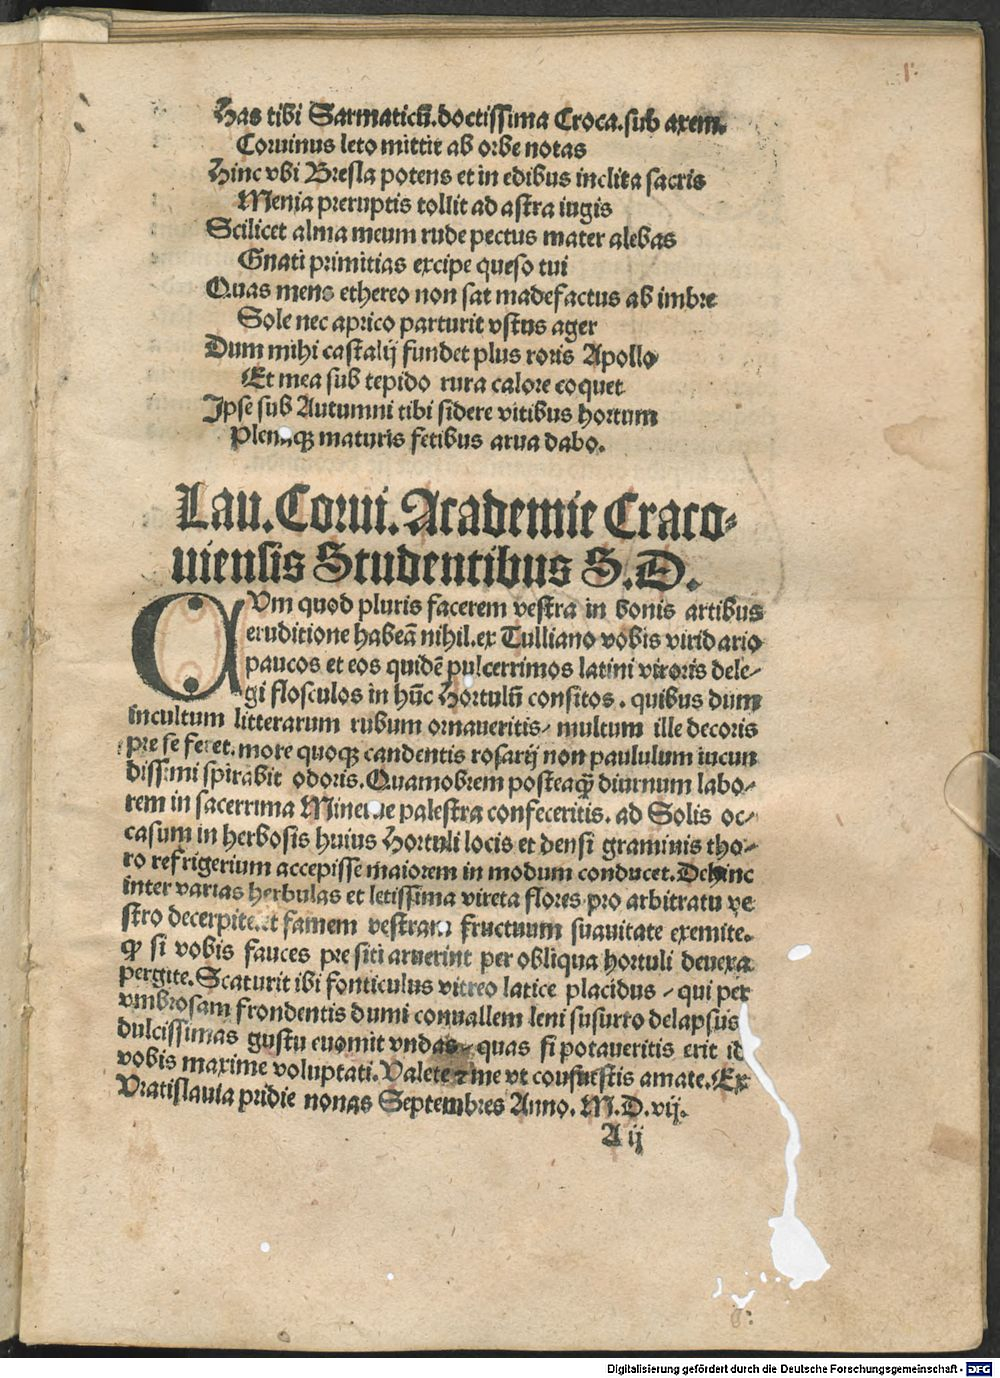 1.
Has tibi Sarmaticū.doctissima Croca.sub axem.
Coruinus leto mittit ab orbe notas
Hinc vbi Bresla potens et in edibus inclita sacris
Menia preruptis tollit ad astra iugis
Scilicet alma meum rude pectus mater alebas
Gnati primitias excipe queso tui
Quas mens ethereo non sat madefactus ab imbre
Sole nec aprico parturit vstus ager
Dum mihi castalij fundet plus roris Apollo
Et mea sub tepido rura calore coquet
Ipse sub Autumni tibi sidere vitibus hortum
maturis fetibus arua dabo.
Lau. Corui. Academie Craco-
uiensis Studentibus S.D.
CVm quod pluris facerem vestra in bonis artibus
eruditione habeā nihil.ex Tulliano vobis viridario
paucos et eos quidē pulcerrimos latini viroris dele-
gi flosculos in hūc Hortulū consitos. quibus dum
incultum litterarum rubum ornaueritis, multum ille decoris
pre se feret. more quoqȝ candentis rosarij non paululum iucun
dissimi spirabit odoris. Quamobrem posteaq̄ȝ diurnum labo-
rem in sacerrima Mineruae palestra confeceritis. ad Solis oc-
casum in herbosis huius Hortuli locis et densi graminis tho-
ro refrigerium accepisse maiorem in modum conducet. Dehinc
inter varias herbulas et letissima vireta flores pro arbitratu ve
stro decerpite.et famem vestram fructuum suauitate eximite.
qȝ si vobis fauces pre siti aruerint per obliqua hortuli deuexa
pergite. Scaturit ibi fonticulus vitreo latice placidus, qui per
vmbrosam frondentis dumi conuallem leni susurro delapsus
dulcissimas gustu euomit vndas, quas si potaueritis erit id
vobis maxime voluptati. Valete ⁊ me vt consuestis amate. Ex
Vratislauia pridie nonas Septembres Anno. M.D.vij.
A ij
Digitalisierung gefördert durch die Deutsche Forschungsgemeinschaft - DFG